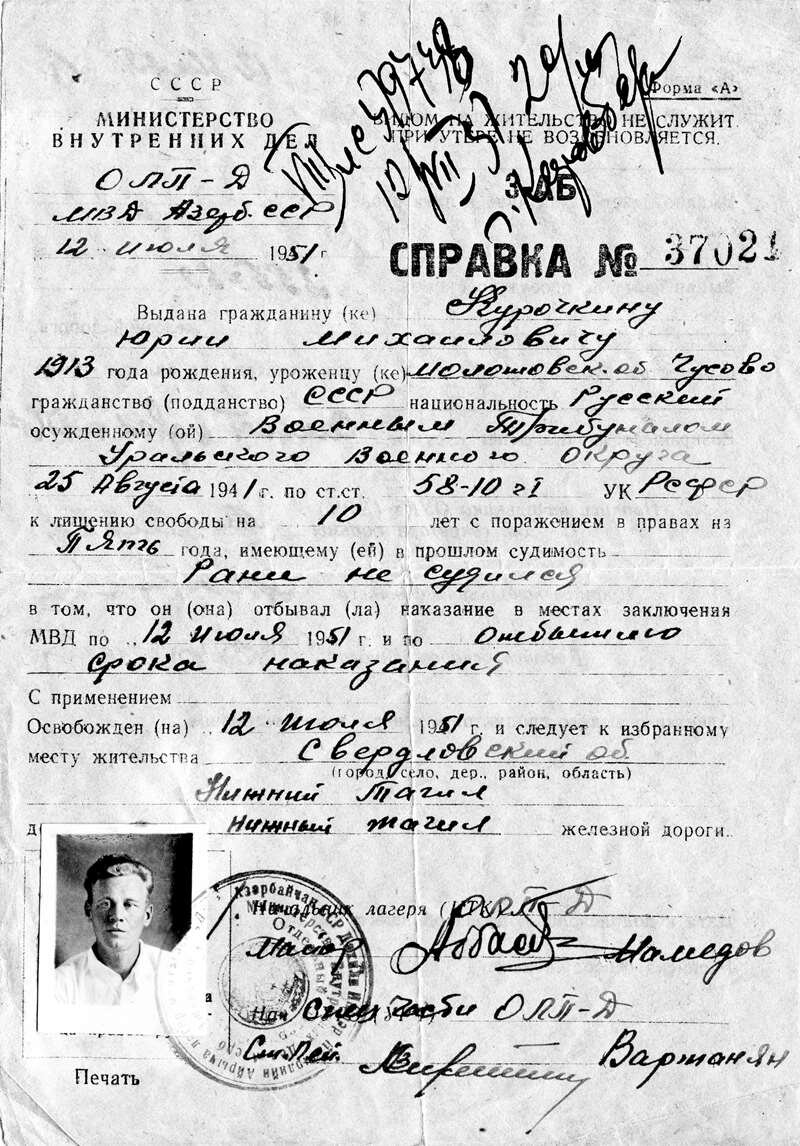 СССР
МИНИСТЕРСТВО
ВНУТРЕННИХ ДЕЛ
ОЛП-Д
МВД Азерб. ССР
12 июля 1951 г
Форма «А»
ВИДОМ НА ЖИТЕЛЬСТВО НЕ СЛУЖИТ.
ПРИ УТЕРЕ НЕ ВОЗОБНОВЛЯЕТСЯ.
СПРАВКА № 37021
Выдана гражданину (ке) Курочкину
Юрии Михаиловичу
1913 года рождения, уроженцу (ке) Молотовск. об Чусово
гражданство (подданство) СССР национальность Русский
осужденному (ой) Военным Трибуналом
Уральского Военного Округа
25 Августа 1941 г. по ст.ст. 58-10 ч I УК РСФСР
к лишению свободы на 10 лет с поражением в правах на
Пять года, имеющему (ей) в прошлом судимость
Рани не судился
в том, что он (она) отбывал (ла) наказание в местах заключения
МВД по 12 июля 1951 г. и по отбытию
срока наказания
С применением
Освобожден (на) 12 июля 1951 г. и следует к избранному
месту жительства Свердловский об.
(город, село, дер., район, область)
Нижний Тагил
Нижный тагил железной дороги.
Начальник лагеря (ИТК) ОЛП-Д
Маиор Мамедов
Нач Спецчасти ОЛП-Д
Ст. Лей. Вартанян
Печать